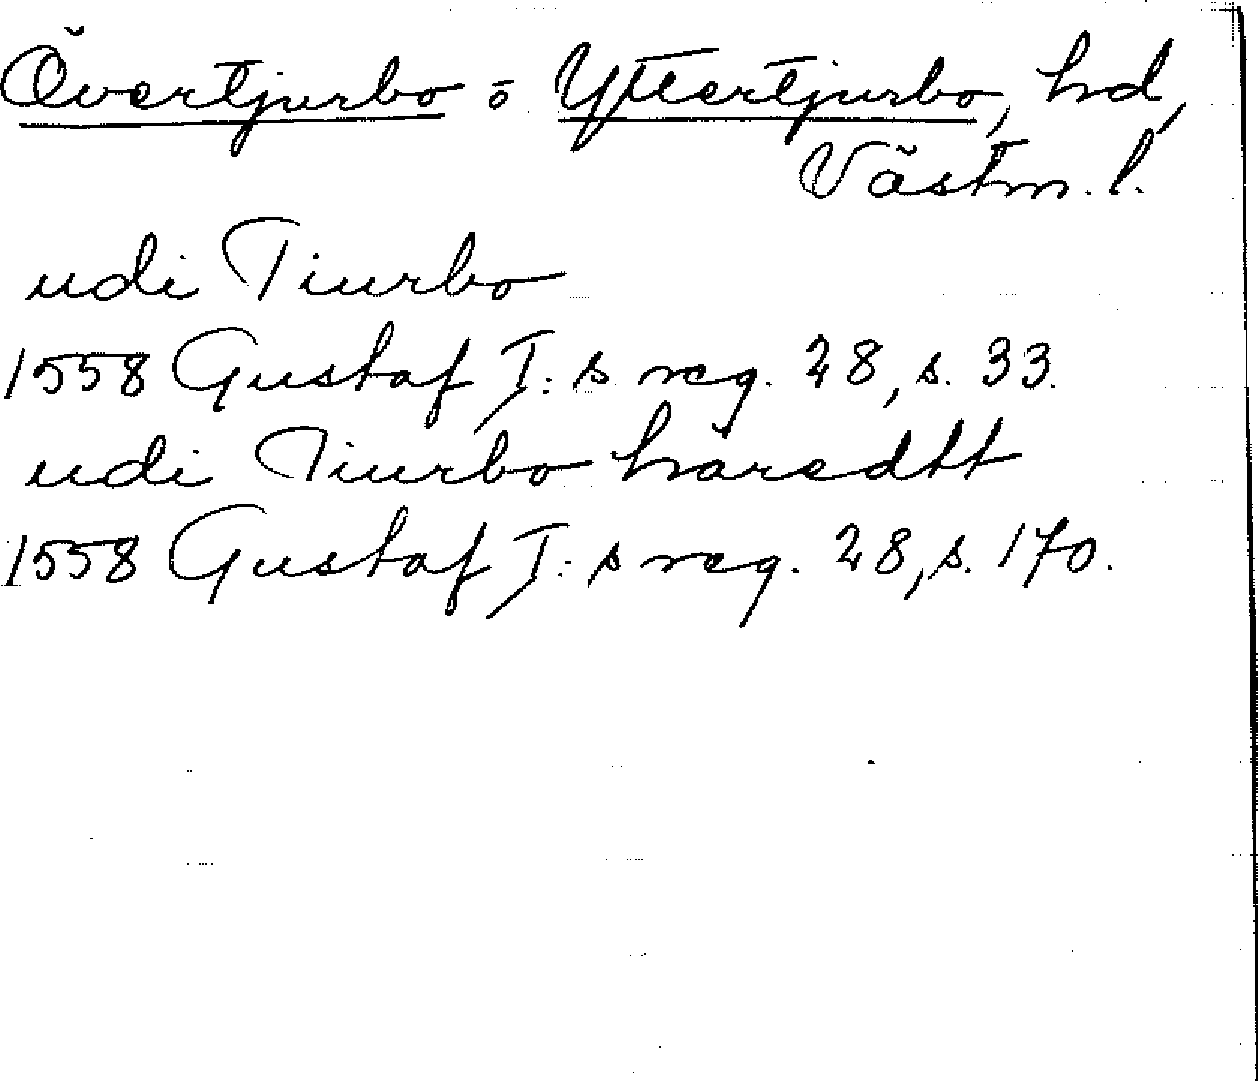 Övertjurbo o Yttertjurbo, hd,
Västm. l.
udi Tiurbo
1558 Gustaf I:s reg. 28, s. 33.
udi Tiurbo häredtt
1558 Gustaf I:s reg. 28, s. 170.